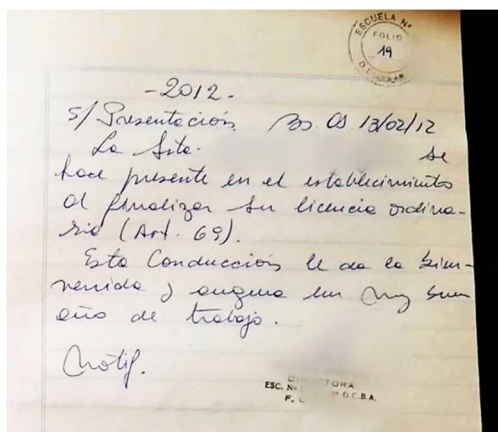 ESCUELA Nº
FOLIO
19
D.E.
- 2012 -
S/ Presentación. Bs. As. 13/02/12
La Srta. se
hace presente en el establecimiento
al finalizar su licencia ordina-
ria (Art. 69).
Esta Conducción le da la bien-
venida y augura un muy buen
año de trabajo.
Notif.
ESC. Nº